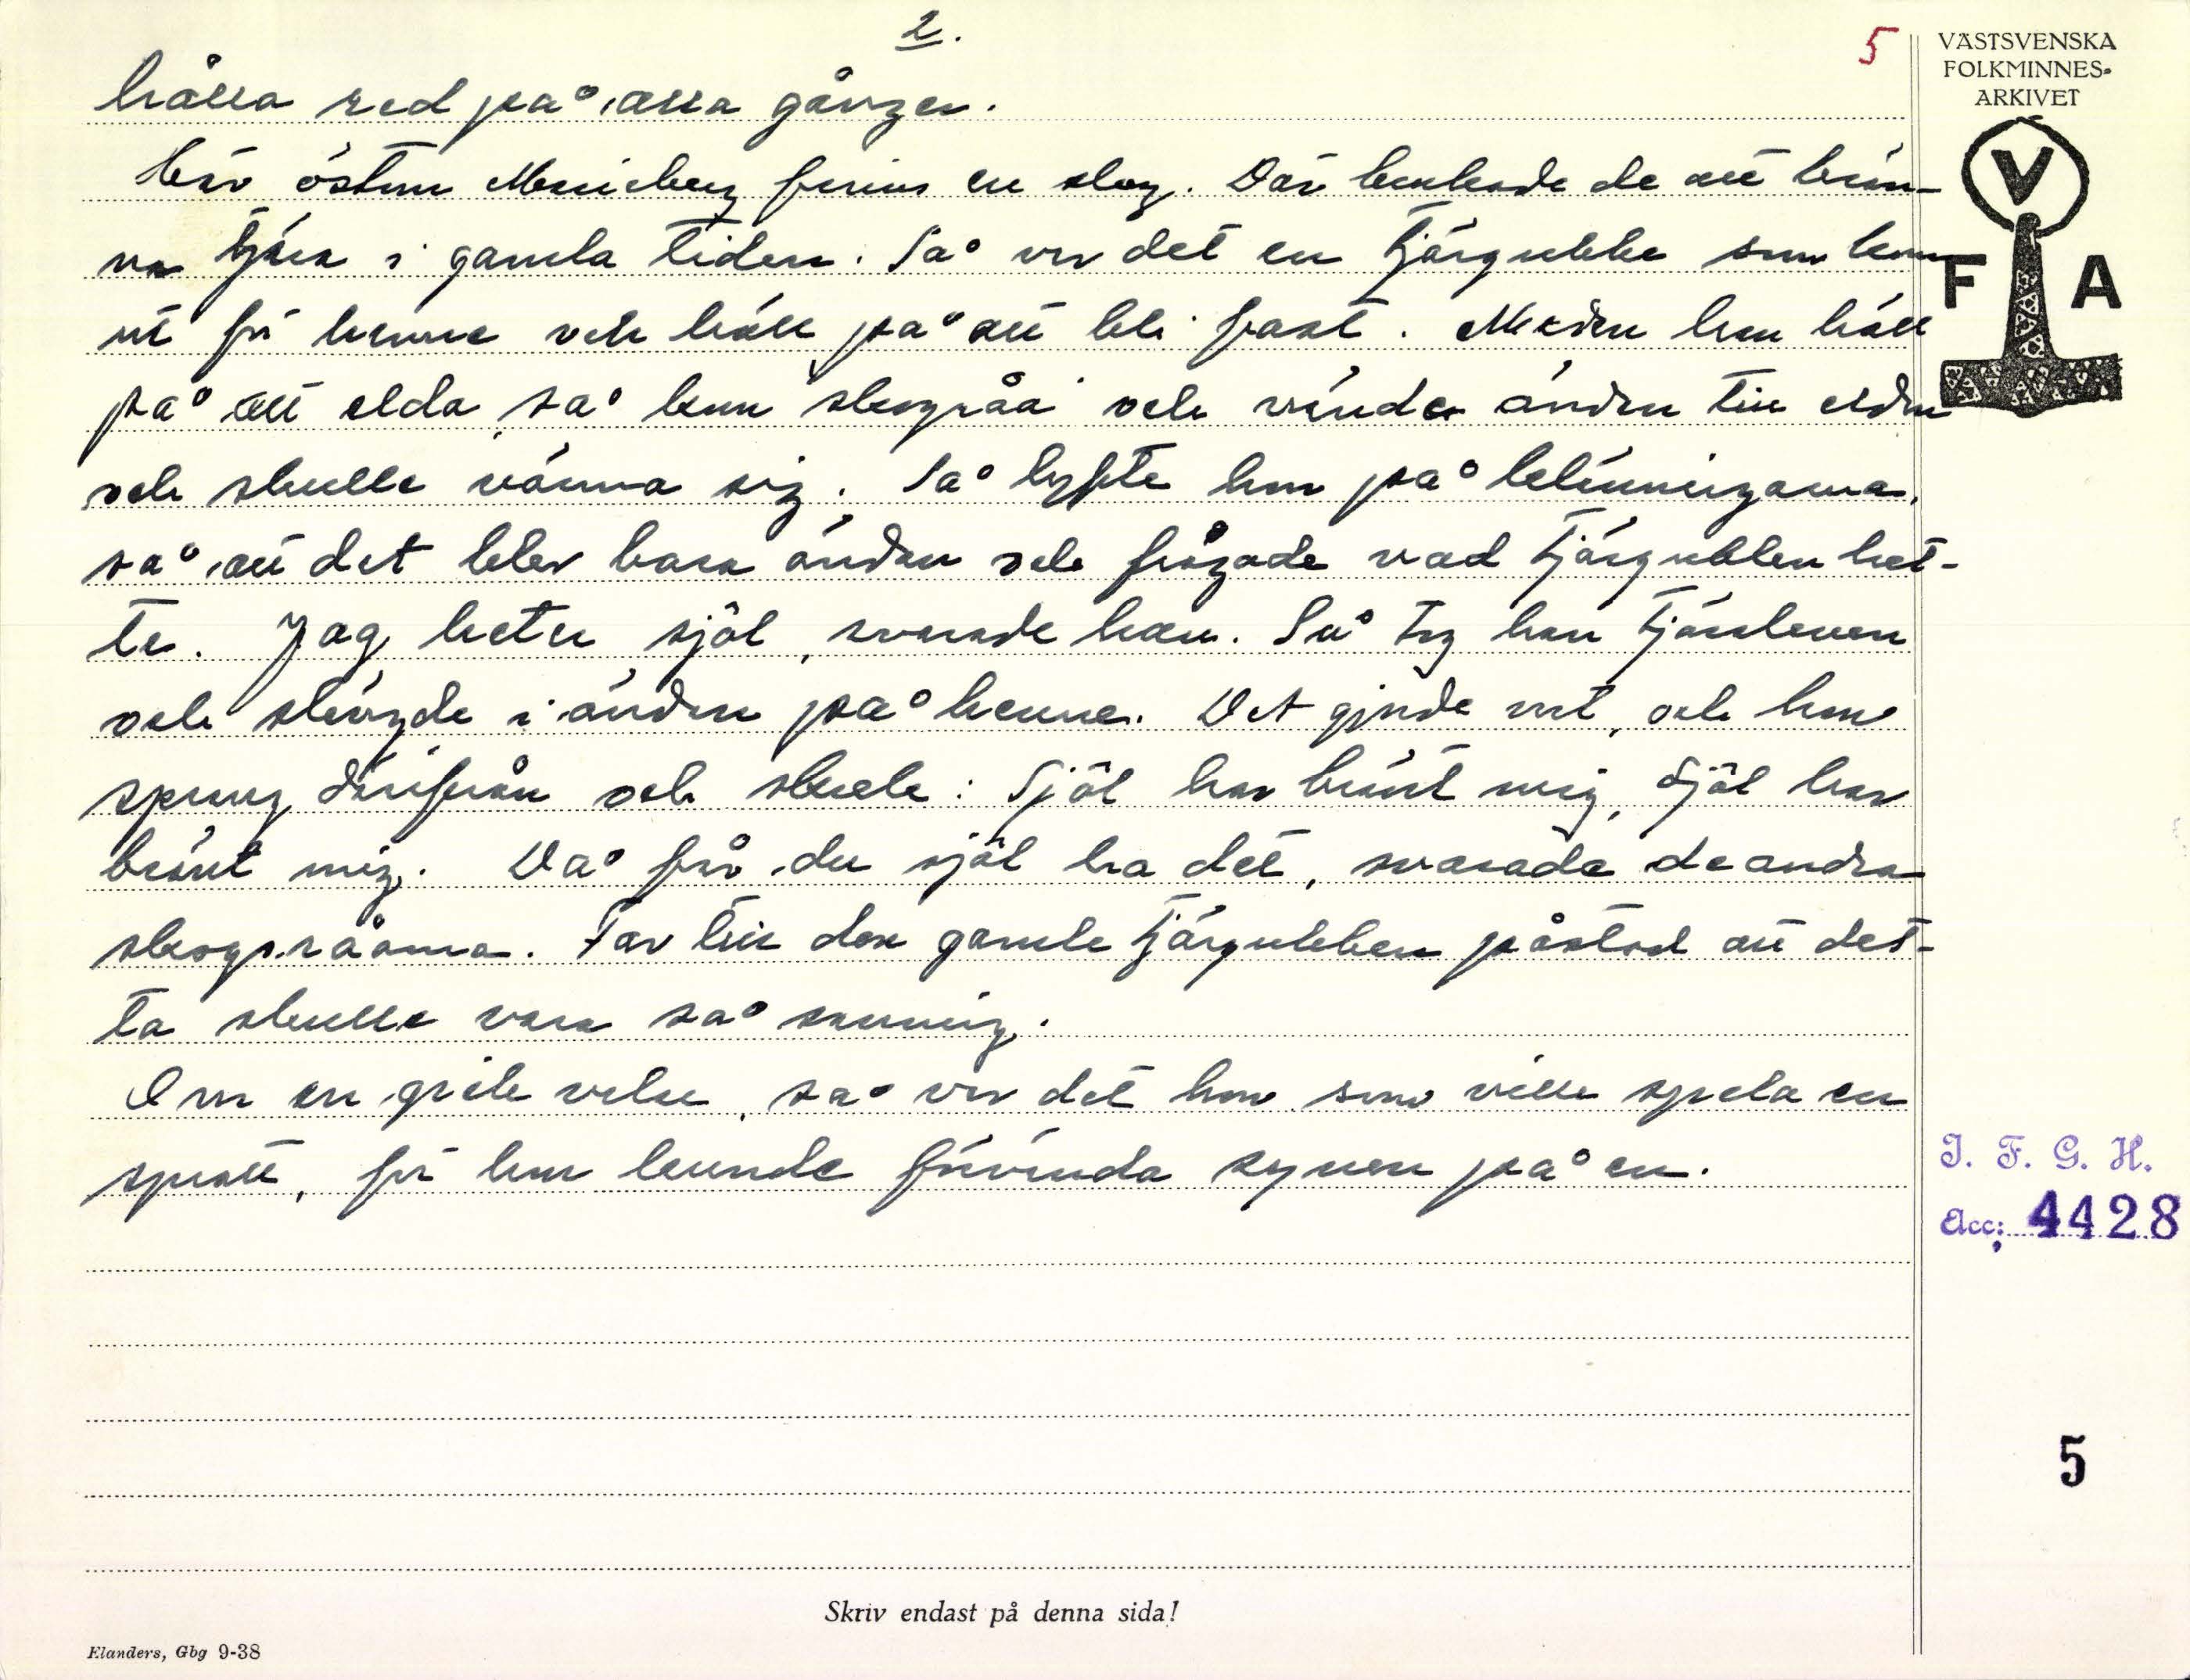 2.
5
VÄSTSVENSKA
FOLKMINNES-
ARKIVET
V
F A
hålla red på alla gånger.
Här östom finns en skog. Där brukade de att brän-
na tjära i gamla tiden. Så var det en tjärgubbe som kom
ut för henne och höll på att bli fast. Medan han höll
på att elda, så kom skogsråa och vände änden till elden
och skulle värma sig. Så lyfte hon på klänningarna,
så att det blev bara änden och frågade vad tjärgubben het-
te. Jag heter sjöl, svarade han. Så tog han tjärsleven
och slängde i änden på henne. Det gjorde ont, och hon
sprang därifrån och skrek: Sjöl har bränt mig, Sjöl har
bränt mig. Då får du sjöl ha det, svarade de andra
skogsråarna. Far till den gamle tjärgubben påstod att det-
ta skulle vara så sanning.
Om en gick vilse, så var det hon som ville spela en
spratt, för hon kunde förvända synen på en.
I. F. G. H.
Acc: 4428
5
Skriv endast på denna sida!
Elanders, Gbg 9-38